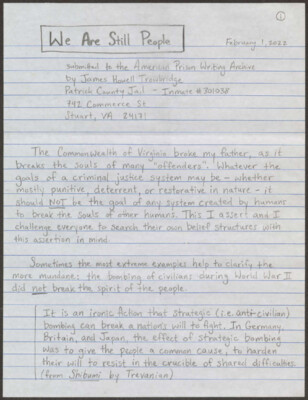 1
We Are Still People
February 1, 2022
submitted to the American Prison Writing Archive
by James Howell Trowbridge
Patrick County Jail - Inmate #301038
742 Commerce St
Stuart, VA 24171
The Commonwealth of Virginia broke my father, as it
breaks the souls of many "offenders". Whatever the
goals of a criminal justice system may be - whether
mostly punitive, deterrent, or restorative in nature - it
should NOT be the goal of any system created by humans
to break the souls of other humans. This I assert and I
challenge everyone to search their own belief structures with
this assertion in mind.
Sometimes the most extreme examples help to clarify the
more mundane: the bombing of civilians during World War II
did not break the spirit of the people.
It is an ironic fiction that strategic (i.e. anti-civilian)
bombing can break a nation's will to fight. In Germany,
Britain, and Japan, the effect of strategic bombing
was to give the people a common cause, to harden
their will to resist in the crucible of shared difficulties.
(from Shibumi by Trevanian)